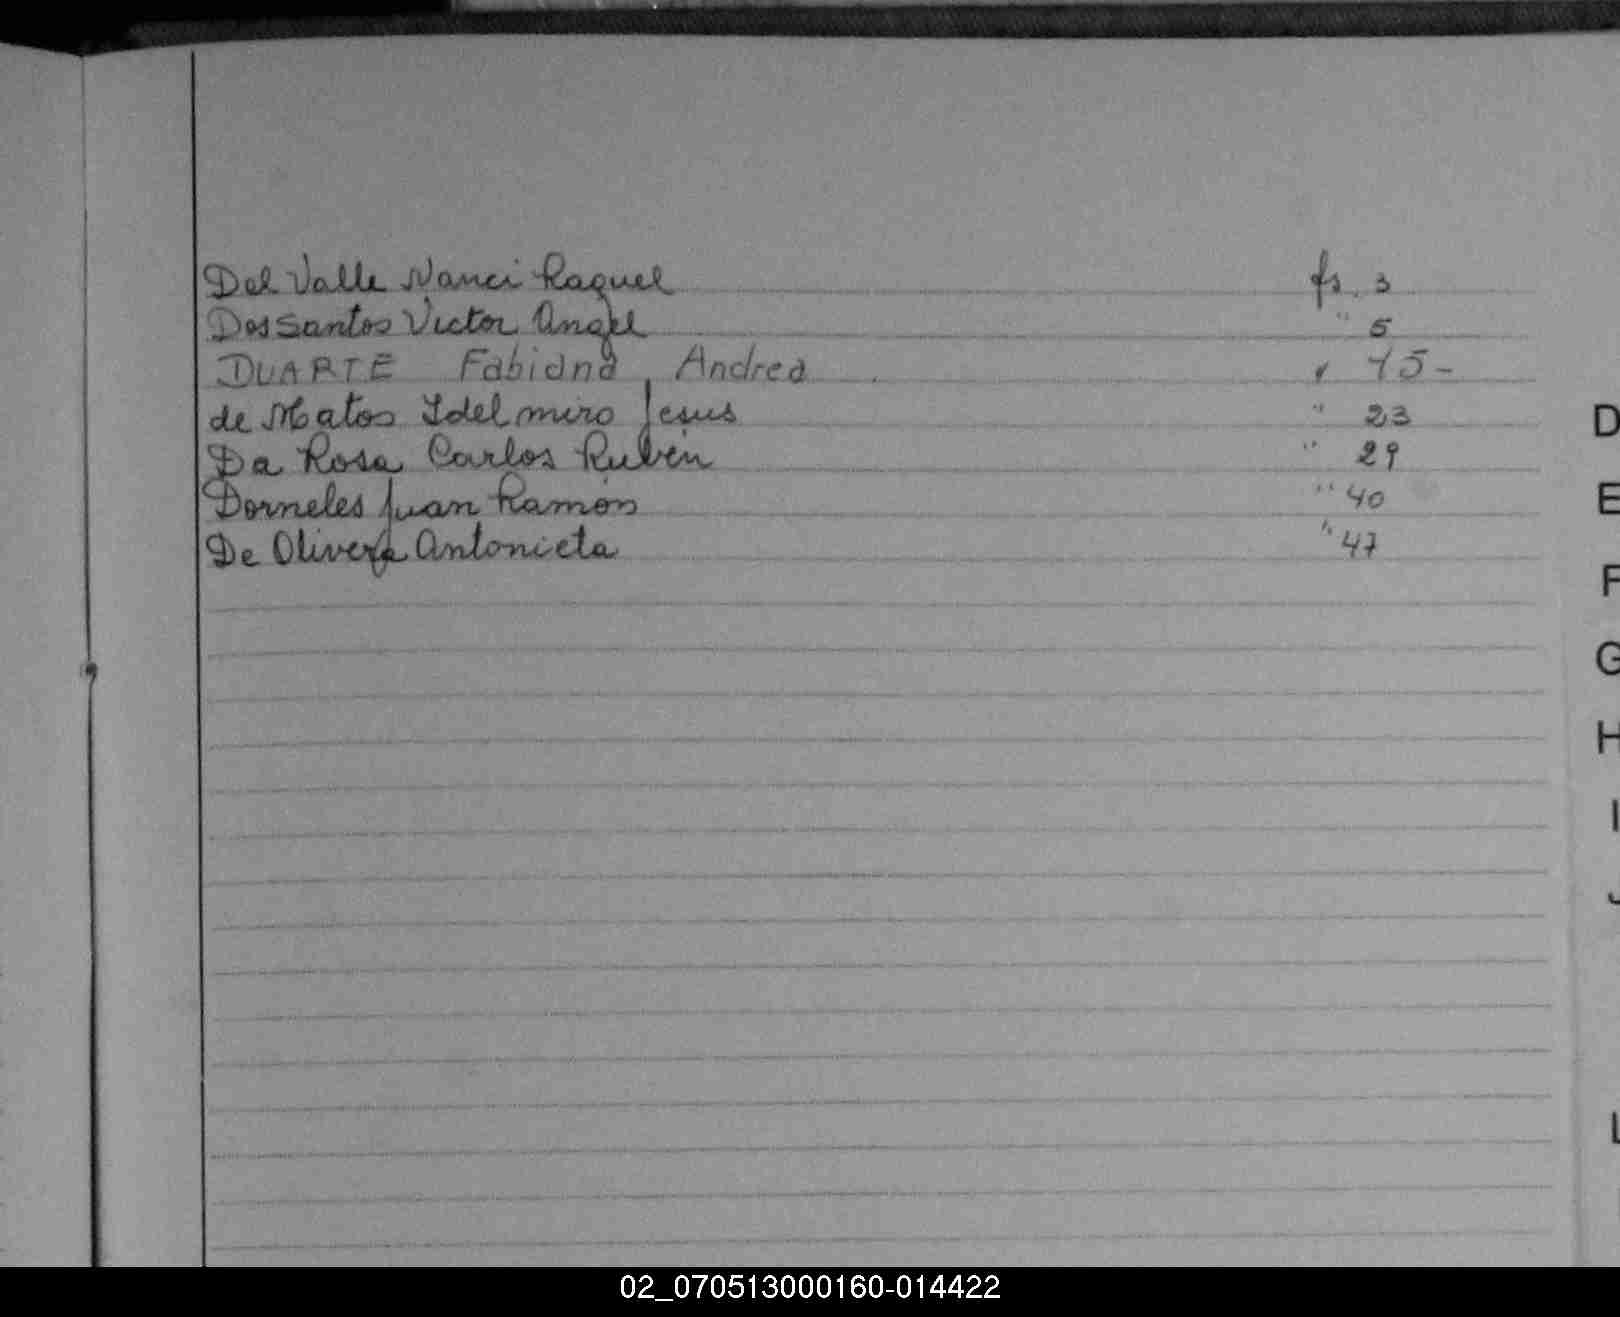 Del Valle Nanci Raquel fs. 3
Dos Santos Victor Angel " 5
DUARTE Fabiana Andrea " 15-
de Matos Idelmiro Jesus " 23
Da Rosa Carlos Rubén " 29
Dorneles Juan Ramón " 40
De Olivera Antonieta " 47
D
E
F
G
H
I
J
L
02_070513000160-014422